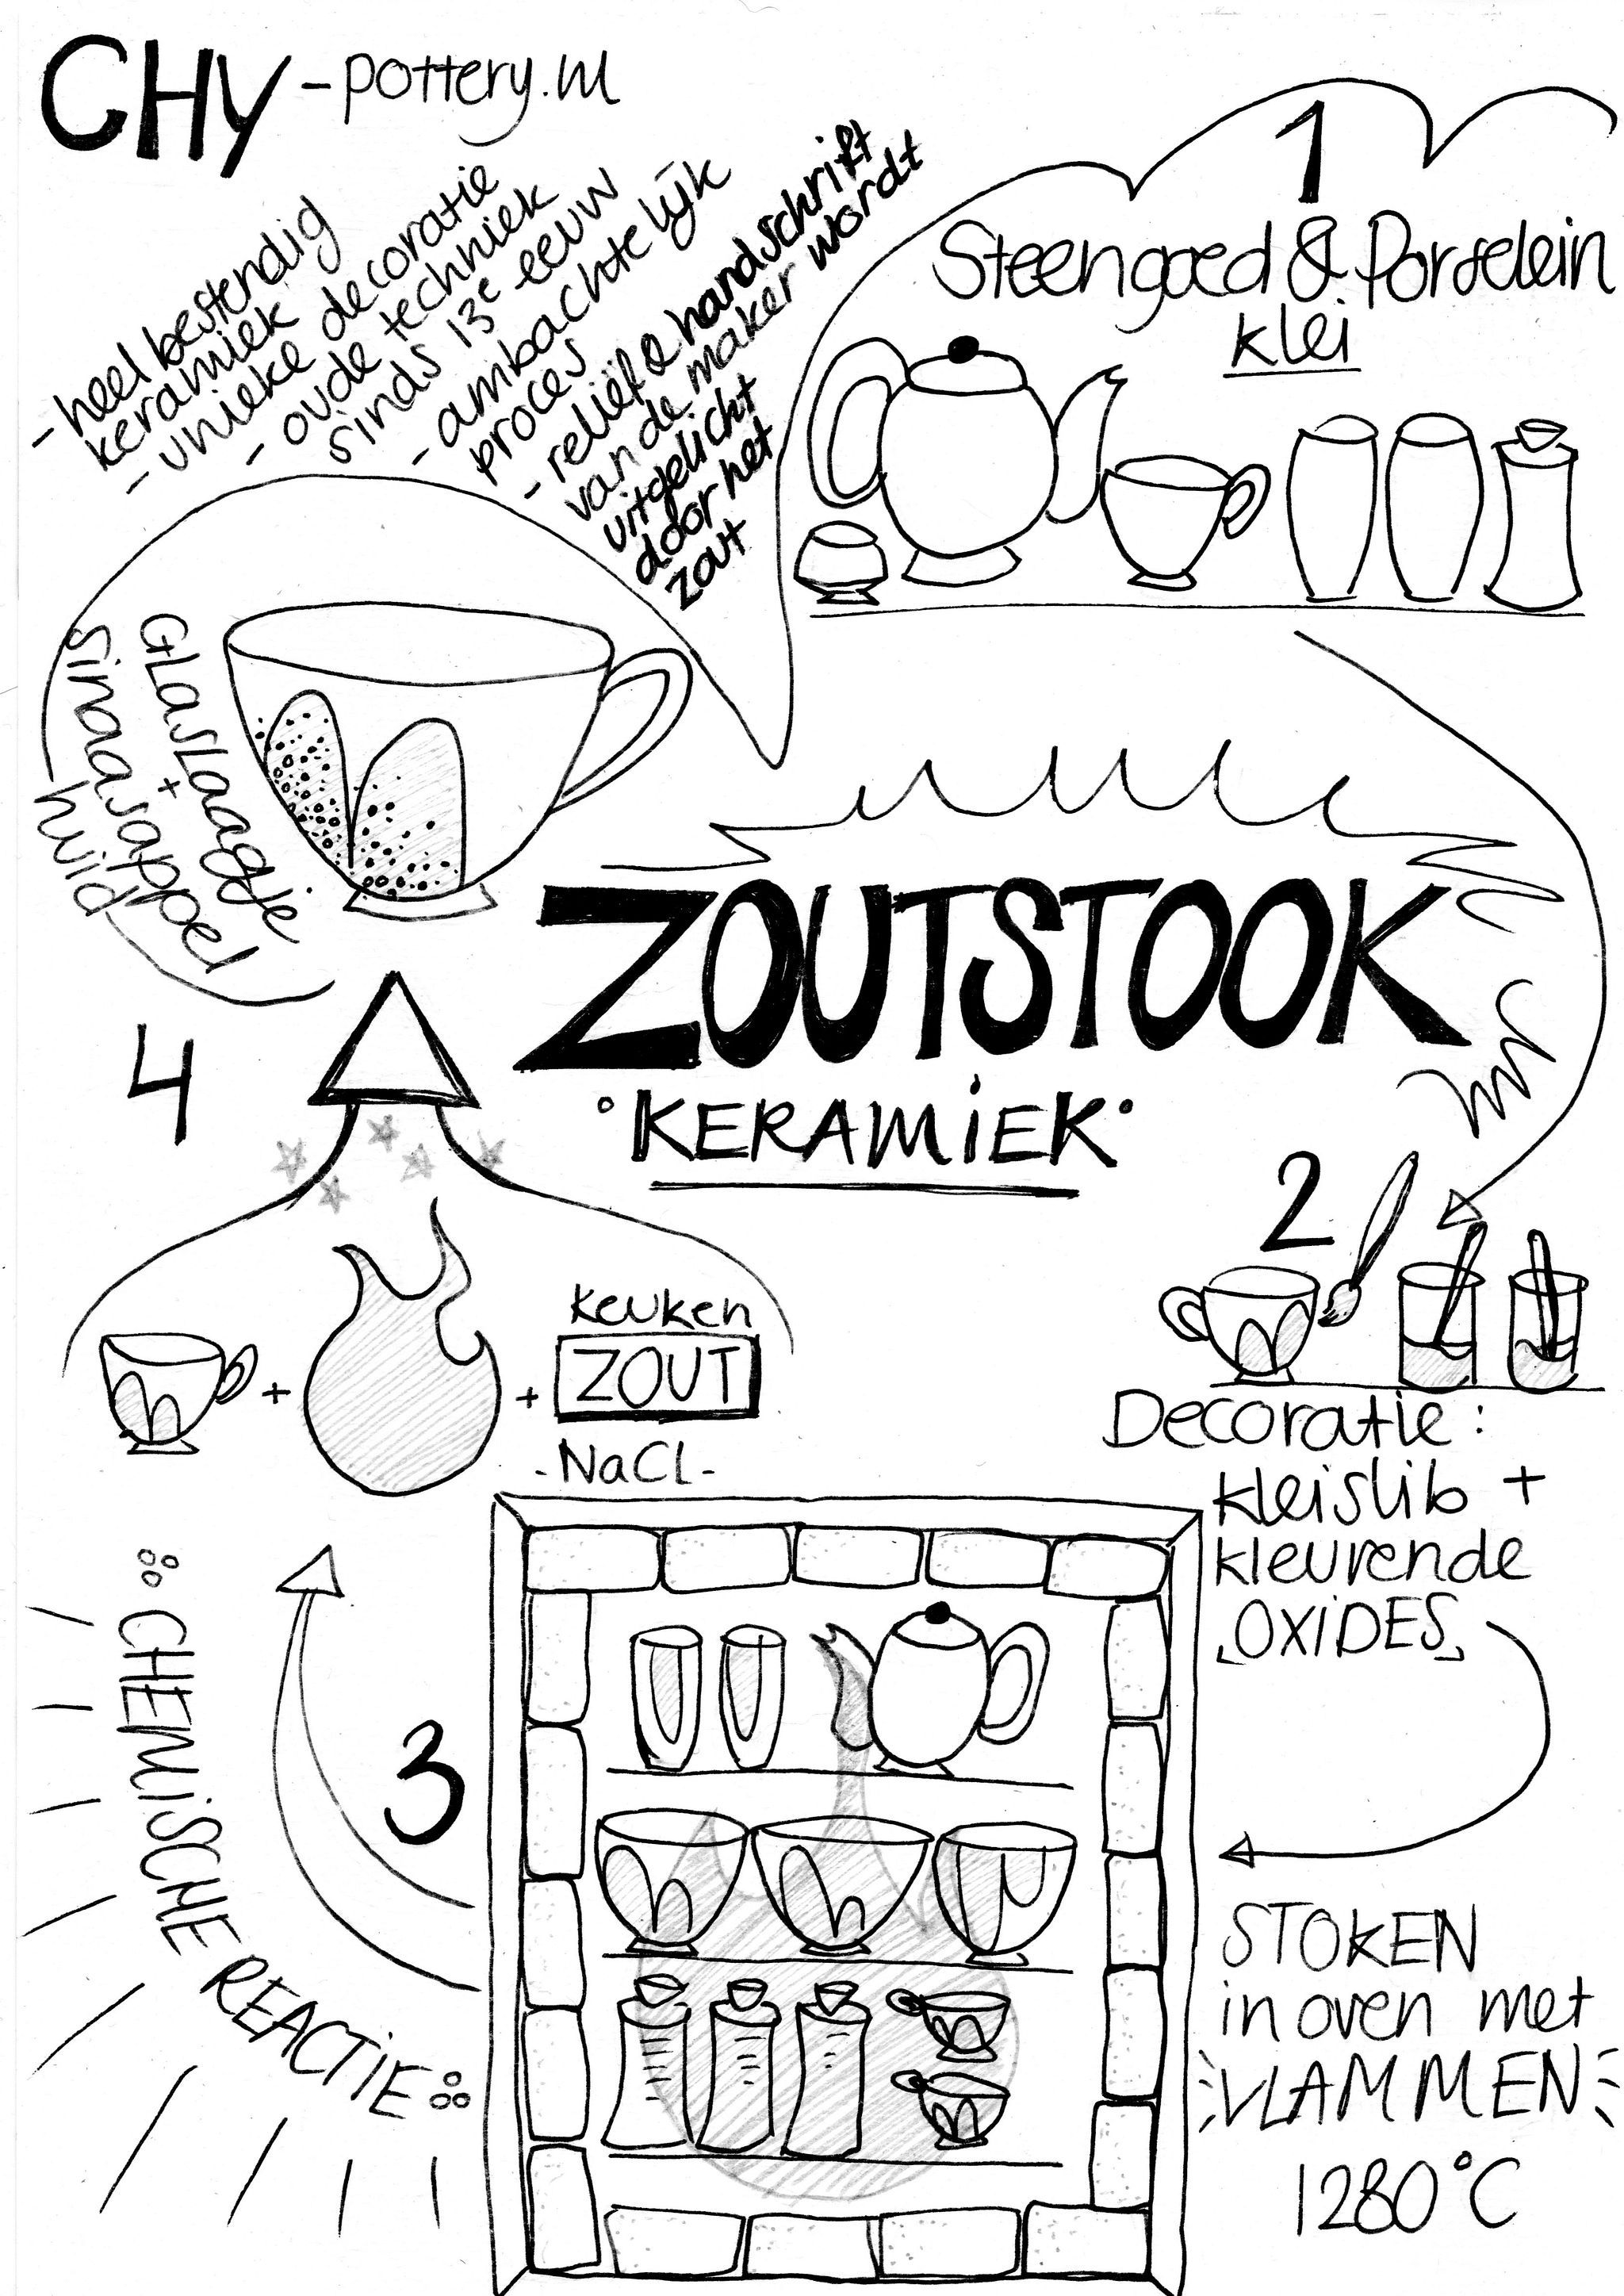 CHY-pottery.nl
- heel bestendig
keramiek
- unieke decoratie
- oude techniek
sinds 13e eeuw
- ambachtelijk
proces
- reliëf & handschrift
van de maker wordt
uitgelicht
door het
zout
1
Steengoed & Porselein
klei
Glaslaagje
+
sinaasappel
huid
ZOUTSTOOK
KERAMIEK
2
Decoratie:
kleislib +
kleurende
OXIDES
3
STOKEN
in oven met
VLAMMEN
1280°C
CHEMISCHE REACTIE
4
+
+
keuken
ZOUT
-NaCl-